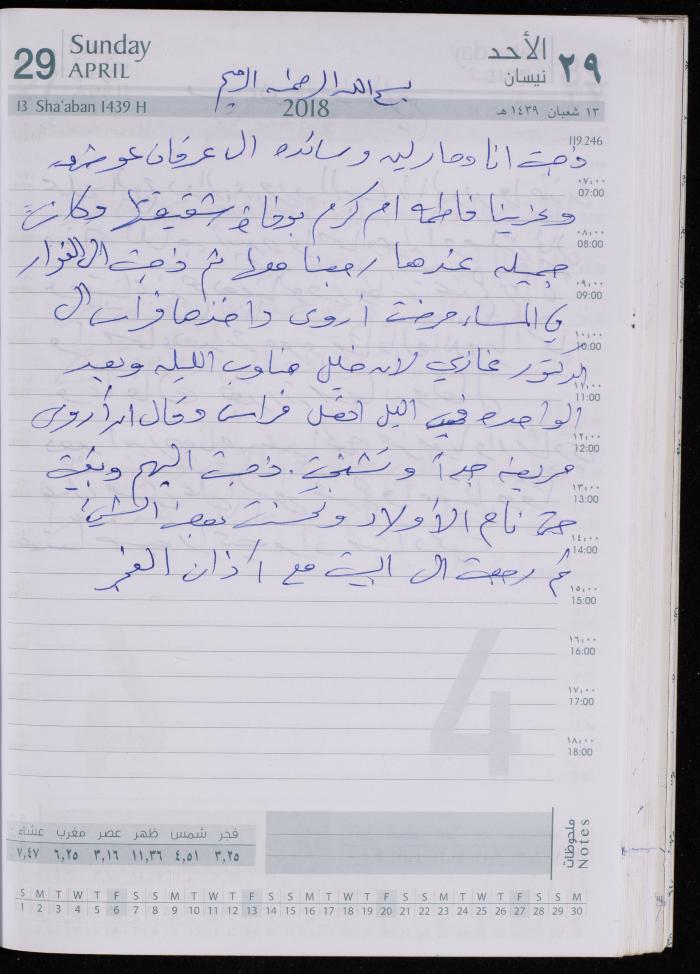 29
Sunday
APRIL
الأحد
نيسان
٢٩
بسم الله الرحمن الرحيم
13 Sha'aban 1439 H
2018
١٣ شعبان ١٤٣٩ هـ
119.246
ذهبت انا ومارليه وسائده ال عرفان عوض
وعزينا فاطمه ام كرم بوفاة شقيقتها وكانت
جميله عندها رجعنا ثم ذهبت ال الفوار
في المساء مرضت أروى واخذها فراس ال
الدكتور غازي لانه خليل مناوب الليله وبعد
الواحده في اليل اتصل فراس وقال ان أروى
مريضه جداً وتشنجت. ذهبت اليهم وبقيت
حتى نام الأولاد وتحسنت بعض الشيئ
ثم رجعت ال البيت مع اذان الفجر
٠٧:٠٠
07:00
٠٨:٠٠
08:00
٠٩:٠٠
09:00
١٠:٠٠
10:00
١١:٠٠
11:00
١٢:٠٠
12:00
١٣:٠٠
13:00
١٤:٠٠
14:00
١٥:٠٠
15:00
١٦:٠٠
16:00
١٧:٠٠
17:00
١٨:٠٠
18:00
4
فجر شمس ظهر عصر مغرب عشاء
٣,٢٥ ٤,٥١ ١١,٣٦ ٣,١٦ ٦,٢٥ ٧,٤٧
ملحوظات
Notes
S M T W T F S S M T W T F S S M T W T F S S M T W T F S S M
1 2 3 4 5 6 7 8 9 10 11 12 13 14 15 16 17 18 19 20 21 22 23 24 25 26 27 28 29 30